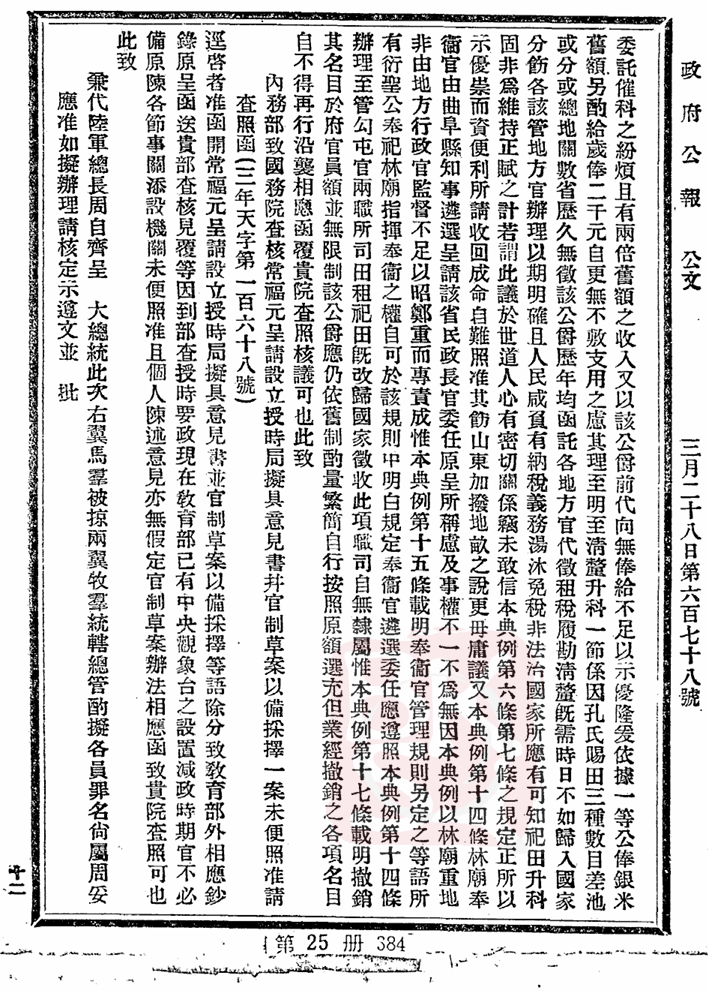 政府公報　公文　三月二十八日第六百七十八號
委託催科之紛煩且有兩倍舊額之收入又以該公爵前代向無俸給不足以示優隆爰依據一等公俸銀米
舊額另酌給歲俸二千元自更無不敷支用之慮其理至明至清釐升科一節係因孔氏賜田三種數目差池
或分或總地關數省歷久無徵該公爵歷年均函託各地方官代徵租稅履勘清釐旣需時日不如歸入國家
分飭各該管地方官辦理以期明確且人民咸負有納稅義務湯沐免稅非法治國家所應有可知祀田升科
固非爲維持正賦之計若謂此議於世道人心有密切關係竊未敢信本典例第六條第七條之規定正所以
示優崇而資便利所請收回成命自難照准其飭山東加撥地畝之說更毋庸議又本典例第十四條林廟奉
衞官由曲阜縣知事遴選呈請該省民政長官委任原呈所稱慮及事權不一不爲無因本典例以林廟重地
非由地方行政官監督不足以昭鄭重而專責成惟本典例第十五條載明奉衞官管理規則另定之等語所
有衍聖公奉祀林廟指揮奉衞之權自可於該規則中明白規定奉衞官遴選委任應遵照本典例第十四條
辦理至管勾屯官兩職所司田租祀田旣改歸國家徵收此項職司自無隸屬惟本典例第十七條載明撤銷
其名目於府官員額並無限制該公爵應仍依舊制酌量繁簡自行按照原額選充但業經撤銷之各項名目
自不得再行沿襲相應函覆貴院查照核議可也此致
內務部致國務院查核常福元呈請設立授時局擬具意見書幷官制草案以備採擇一案未便照准請
查照函(三年天字第一百六十八號)
逕啓者准函開常福元呈請設立授時局擬具意見書並官制草案以備採擇等語除分致敎育部外相應鈔
錄原呈函送貴部查核見覆等因到部查授時要政現在敎育部已有中央觀象台之設置減政時期官不必
備原陳各節事關添設機關未便照准且個人陳述意見亦無假定官制草案辦法相應函致貴院查照可也
此致
兼代陸軍總長周自齊呈　大總統此次右翼馬羣被掠兩翼牧羣統轄總管酌擬各員罪名尙屬周妥
應准如擬辦理請核定示遵文並　批
十二
第 25 册 384